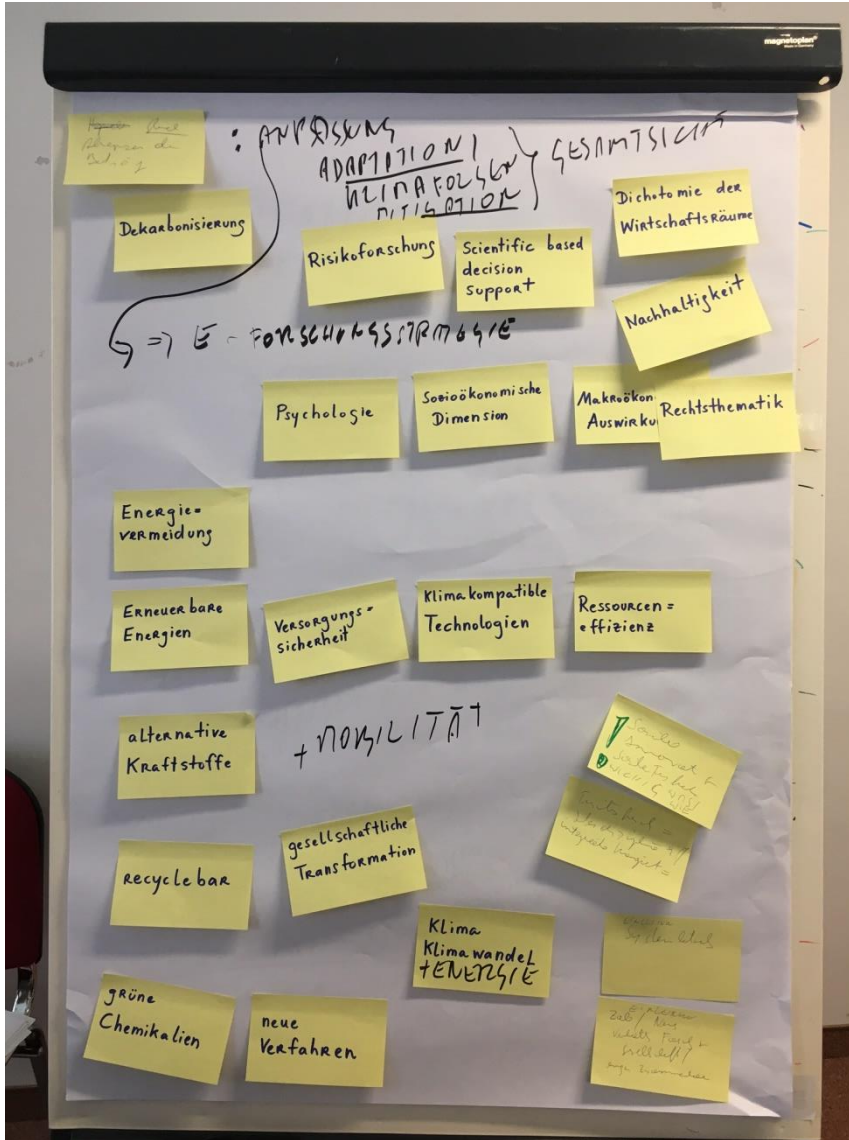 magnetoplan®
: ANPASSUNG
ADAPTATION /
KLIMAFOLGEN
MITIGATION
GESAMTSICHT
Dekarbonisierung
Risikoforschung
Scientific based
decision
support
Dichotomie der
Wirtschaftsräume
Nachhaltigkeit
=> E - FORSCHUNGSSTRATEGIE
Psychologie
Sozioökonomische
Dimension
Makroökon
Auswirku
Rechtsthematik
Energie-
vermeidung
Erneuerbare
Energien
Versorgungs-
sicherheit
Klimakompatible
Technologien
Ressourcen=
effizienz
alternative
Kraftstoffe
+ MOBILITÄT
recyclebar
gesellschaftliche
Transformation
Klima
Klimawandel
+ENERGIE
grüne
Chemikalien
neue
Verfahren